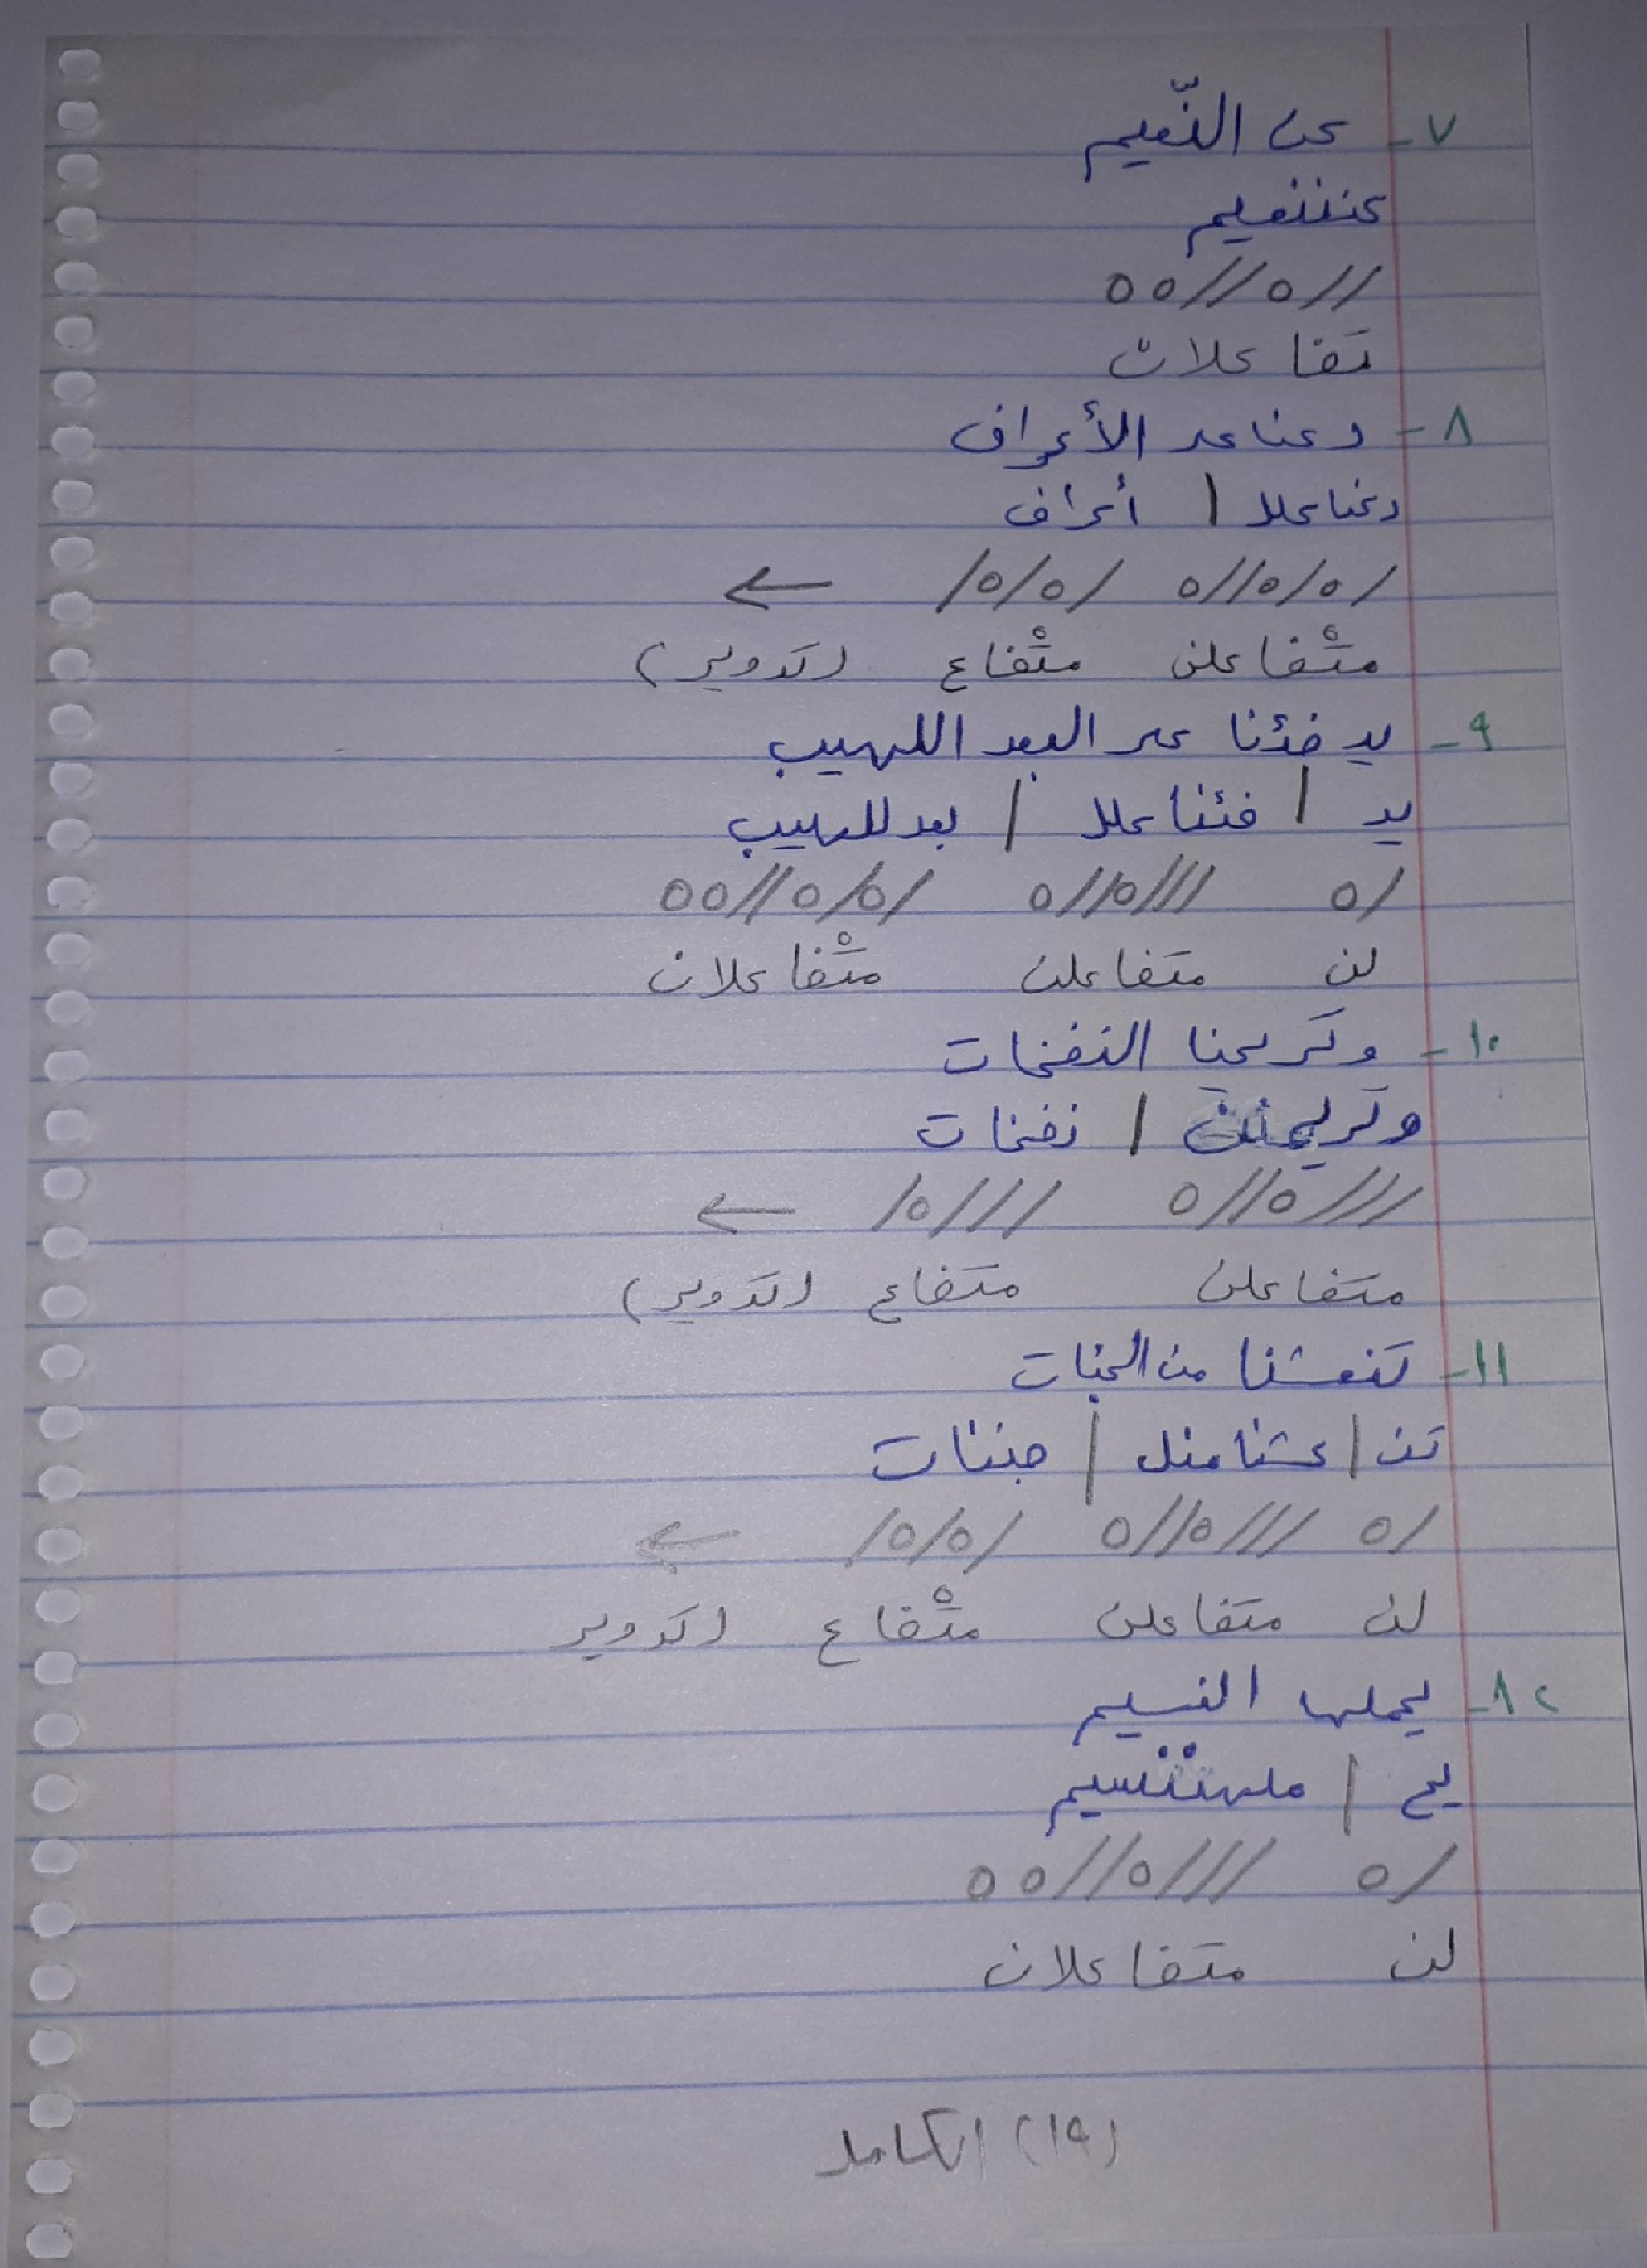 ٧- عن النّعيم
عنننعيم
//ه//ه ه
تفاعلات
٨- دعنا على الأعراف
دعنا علل | أعراف
/ه/ه//ه /ه/ه/ ←
متْفاعلن متْفاع (تدوير)
٩- يدفئنا على البعد اللهيب
يد | فئنا علل | بعد للهيب
/ه ///ه//ه /ه/ه//ه ه
لن متفاعلن متْفاعلان
١٠- وتريحنا النفخات
وتريحنن | نفخات
///ه//ه ///ه/ ←
متفاعلن متفاع (تدوير)
١١- تنعشنا من الجنات
تن | عشنا منل | جننات
/ه ///ه//ه /ه/ه/ ←
لن متفاعلن متْفاع (تدوير
١٢- يحملها النسيم
يح | ملهننسيم
/ه ///ه//ه ه
لن متفاعلان
(١٩) الكامل